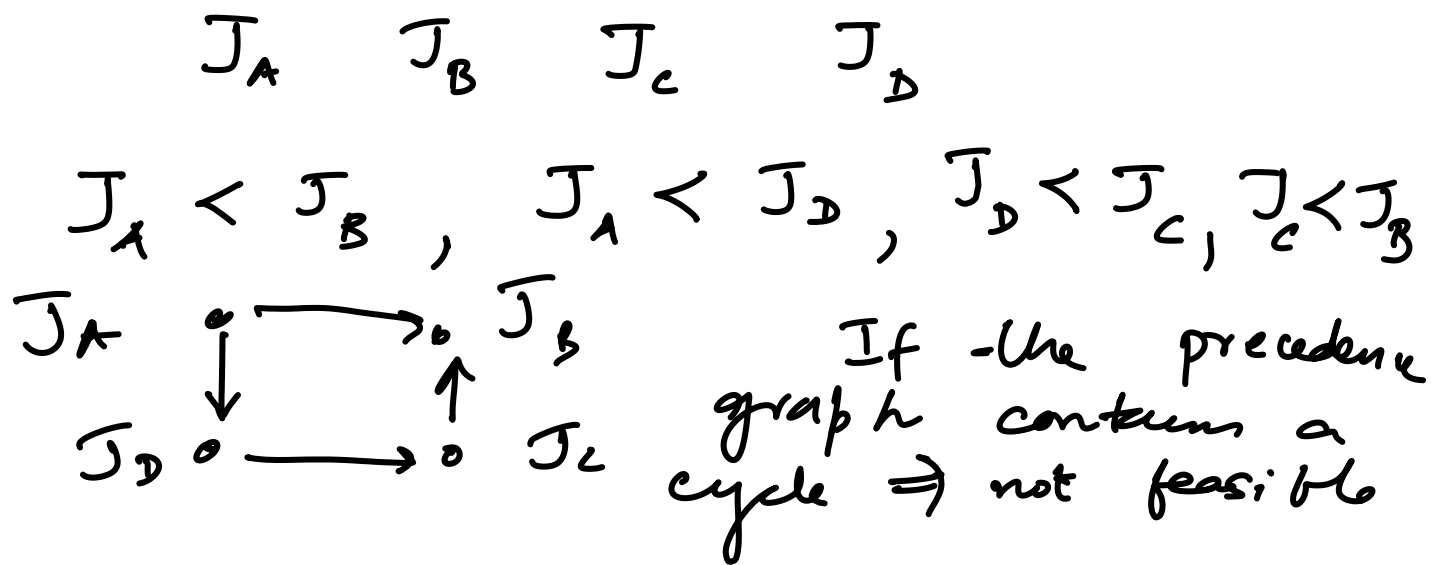 J_A J_B J_C J_D
J_A < J_B , J_A < J_D , J_D < J_C , J_C < J_B
J_A J_B
If the precedence
graph contains a
J_D J_C
cycle ⇒ not feasible